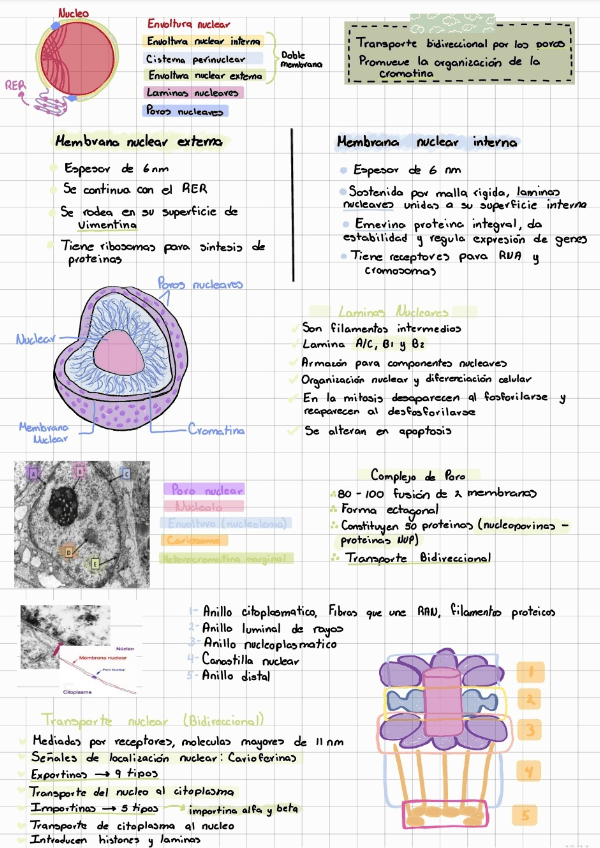 Nucleo
RER
Envoltura nuclear
Envoltura nuclear interna
Cisterna perinuclear
Envoltura nuclear externa
Doble
membrana
Laminas nucleares
Poros nucleares
Transporte bidireccional por los poros
Promueve la organización de la
cromatina
Membrana nuclear externa
Espesor de 6nm
Se continua con el RER
Se rodea en su superficie de
Vimentina
Tiene ribosomas para sintesis de
proteinas
Membrana nuclear interna
Espesor de 6 nm
Sostenida por malla rigida, laminas
nucleares unidas a su superficie interna
Emerina proteina integral, da
estabilidad y regula expresión de genes
Tiene receptores para RNA y
cromosomas
Poros nucleares
Nuclear
Membrana
Nuclear
Cromatina
Laminas Nucleares
Son filamentos intermedios
Lamina A/C, B1 y B2
Armazón para componentes nucleares
Organización nuclear y diferenciación celular
En la mitosis desaparecen al fosforilarse y
reaparecen al desfosforilarse
Se alteran en apoptosis
A
B
C
D
E
Poro nuclear
Nucleolo
Envoltura (nucleolema)
Cariosoma
Heterocromatina marginal
Complejo de Poro
80 - 100 fusión de 2 membranas
Forma octagonal
Constituyen 50 proteinas (nucleoporinas -
proteinas NUP)
Transporte Bidireccional
Núcleo
Membrana nuclear
Poro Nuclear
Citoplasma
1- Anillo citoplasmatico, Fibras que une RAN, filamentos proteicos
2- Anillo luminal de rayos
3- Anillo nucleoplasmatico
4- Canastilla nuclear
5- Anillo distal
Transporte nuclear (Bidireccional)
Mediadas por receptores, moleculas mayores de 11 nm
Señales de localización nuclear: Carioferinas
Exportinas → 9 tipos
Transporte del nucleo al citoplasma
Importinas → 5 tipos → importina alfa y beta
Transporte de citoplasma al nucleo
Introducen histones y laminas
1
2
3
4
5